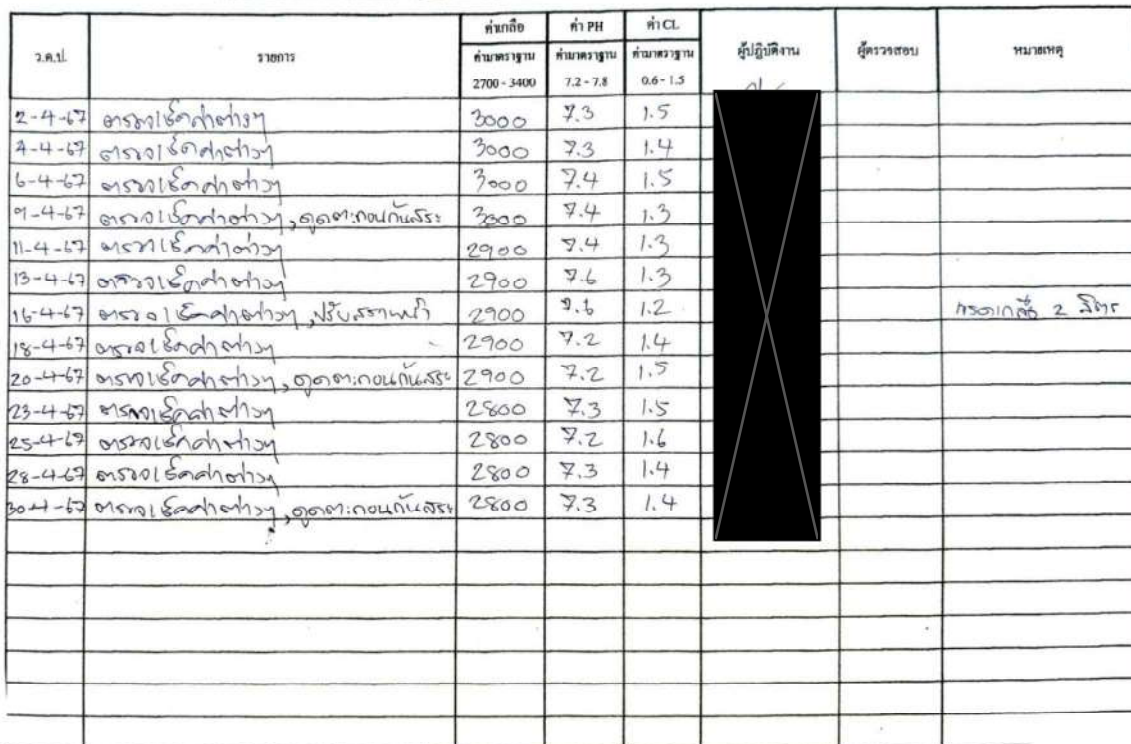 ว.ด.ป. รายการ ค่าเกลือ ค่า PH ค่า CL ผู้ปฏิบัติงาน ผู้ตรวจสอบ หมายเหตุ
ค่ามาตราฐาน ค่ามาตราฐาน ค่ามาตราฐาน
2700 - 3400 7.2 - 7.8 0.6 - 1.5
2-4-67 ตรวจเช็คค่าต่างๆ 3000 7.3 1.5
4-4-67 ตรวจเช็คค่าต่างๆ 3000 7.3 1.4
6-4-67 ตรวจเช็คค่าต่างๆ 3000 7.4 1.5
9-4-67 ตรวจเช็คค่าต่างๆ, ดูดตะกอนก้นสระ 3000 7.4 1.3
11-4-67 ตรวจเช็คค่าต่างๆ 2900 7.4 1.3
13-4-67 ตรวจเช็คค่าต่างๆ 2900 7.6 1.3
16-4-67 ตรวจเช็คค่าต่างๆ, ปรับสภาพน้ำ 2900 7.6 1.2 กรดเกลือ 2 ลิตร
18-4-67 ตรวจเช็คค่าต่างๆ 2900 7.2 1.4
20-4-67 ตรวจเช็คค่าต่างๆ, ดูดตะกอนก้นสระ 2900 7.2 1.5
23-4-67 ตรวจเช็คค่าต่างๆ 2800 7.3 1.5
25-4-67 ตรวจเช็คค่าต่างๆ 2800 7.2 1.6
28-4-67 ตรวจเช็คค่าต่างๆ 2800 7.3 1.4
30-4-67 ตรวจเช็คค่าต่างๆ, ดูดตะกอนก้นสระ 2800 7.3 1.4